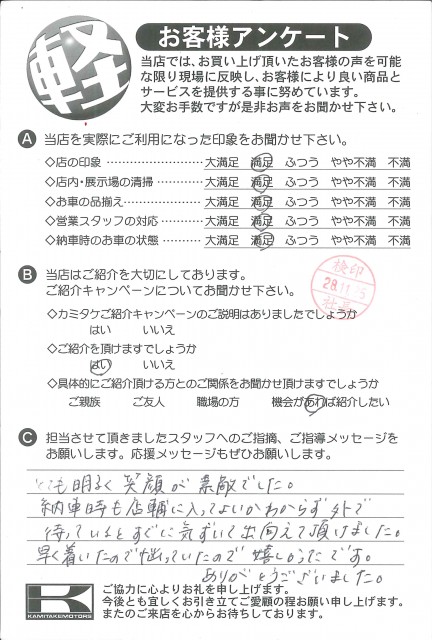 軽
お客様アンケート
当店では、お買い上げ頂いたお客様の声を可能
な限り現場に反映し、お客様により良い商品と
サービスを提供する事に努めています。
大変お手数ですが是非お声をお聞かせ下さい。
A 当店を実際にご利用になった印象をお聞かせ下さい。
◇店の印象 大満足 満足 ふつう やや不満 不満
◇店内・展示場の清掃 大満足 満足 ふつう やや不満 不満
◇お車の品揃え 大満足 満足 ふつう やや不満 不満
◇営業スタッフの対応 大満足 満足 ふつう やや不満 不満
◇納車時のお車の状態 大満足 満足 ふつう やや不満 不満
B 当店はご紹介を大切にしております。
ご紹介キャンペーンについてお聞かせ下さい。
検印
28.11.
社長
◇カミタケご紹介キャンペーンのご説明はありましたでしょうか
はい いいえ
◇ご紹介を頂けますでしょうか
はい いいえ
◇具体的にご紹介頂ける方とのご関係をお聞かせ頂けますでしょうか
ご親族 ご友人 職場の方 機会があれば紹介したい
C 担当させて頂きましたスタッフへのご指摘、ご指導メッセージを
お願いします。応援メッセージもぜひお願いします。
とても明るく笑顔が素敵でした。
納車時も店舗に入ってよいかわからず外で
待っているとすぐに気ずいて出向えて頂けました。
早く着いたので悩っていたので嬉しかったです。
ありがとうございました。
K
KAMITAKEMOTORS
ご協力に心よりお礼を申し上げます。
今後とも宜しくお引き立てご愛顧の程お願い申し上げます。
またのご来店を心からお待ちしております。